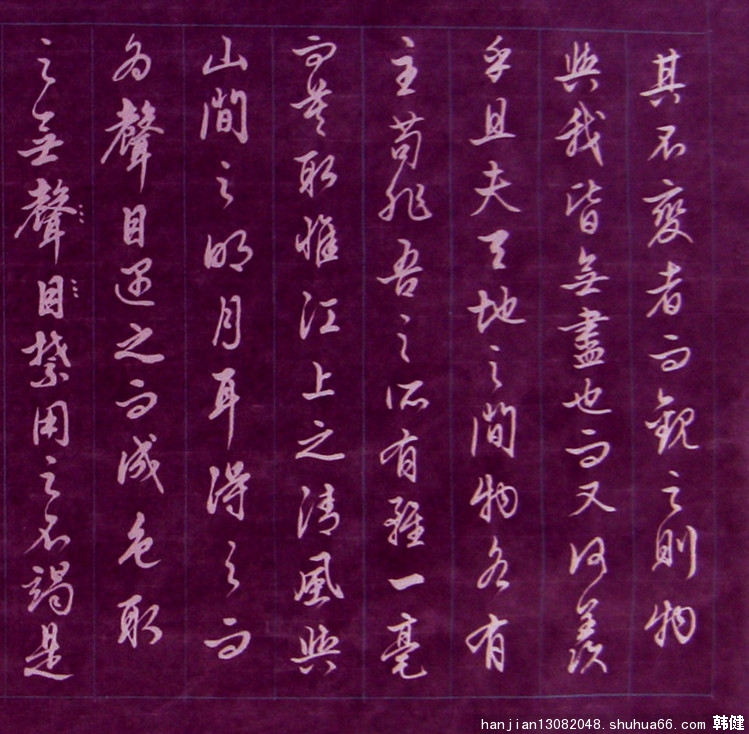 其不變者而觀之則物
與我皆無盡也而又何羨
乎且夫天地之間物各有
主苟非吾之所有雖一毫
而莫取惟江上之清風與
山間之明月耳得之而
為聲目遇之而成色取
之無聲目禁用之不竭是
hanjian13082048.shuhua66.com 韩健